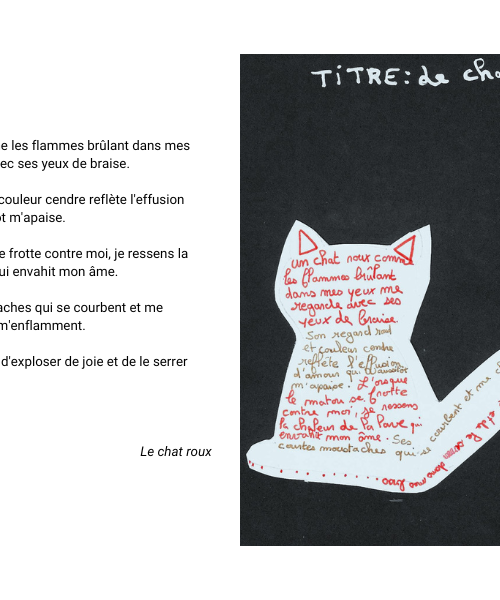 e les flammes brûlant dans mes
ec ses yeux de braise.
couleur cendre reflète l'effusion
t m'apaise.
e frotte contre moi, je ressens la
ui envahit mon âme.
aches qui se courbent et me
m'enflamment.
d'exploser de joie et de le serrer
Le chat roux
TiTRE: Le cha
un chat roux comme
les flammes brûlant
dans mes yeux me
regarde avec ses
yeux de braise
Son regard
et couleur cendre
reflète l'effusion
d'amour qui
m'apaise. L'orsque
le matou se frotte
contre moi, je ressens
la chaleur de la lave qui
envahit mon âme. Ses
courtes moustaches qui se courbent et me